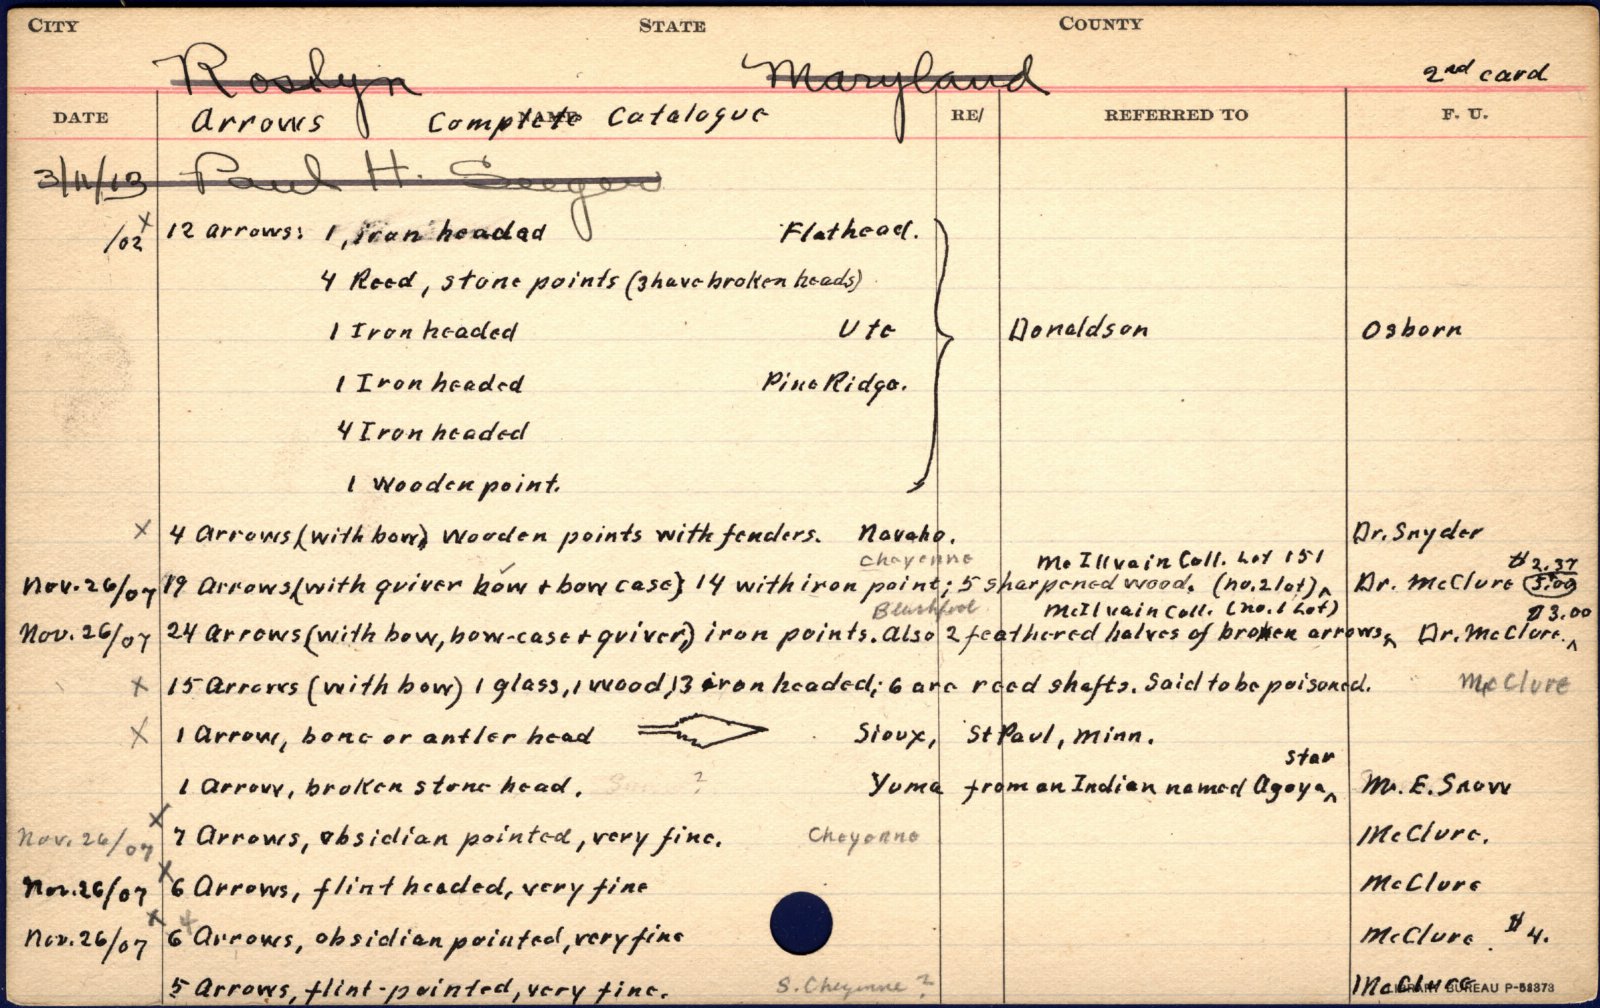 CITY STATE COUNTY
Roslyn Maryland 2nd card
DATE NAME RE/ REFERRED TO F. U.
Arrows Complete Catalogue
3/11/13 Paul H.
/02 x 12 arrows: 1, Iron headed Flathead.
4 Reed, stone points (3 have broken heads)
1 Iron headed Ute Donaldson Osborn
1 Iron headed Pine Ridge.
4 Iron headed
1 Wooden point.
x 4 Arrows (with bow) Wooden points with fenders. Navaho. Dr. Snyder
Cheyenne McIllvain Coll. Lot 151 $2.37
Nov. 26/07 19 Arrows (with quiver bow + bow case) 14 with iron point; 5 sharpened wood. (no. 2 lot)^ Dr. McClure 5.00
Blackfoot McIlvain Coll. (no. 1 Lot) $3.00
Nov. 26/07 24 Arrows (with bow, bow-case + quiver,) iron points. Also 2 feathered halves of broken arrows.^ Dr. McClure.^
x 15 Arrows (with bow) 1 glass, 1 wood, 13 iron headed; 6 are reed shafts. Said to be poisoned. McClure
x 1 Arrow, bone or antler head Sioux, St Paul, Minn.
star
1 Arrow, broken stone head. ? Yuma from an Indian named Agoya^ Mr. E. Snow
Nov. 26/07 x 7 Arrows, obsidian pointed, very fine. Cheyenne McClure.
Nov. 26/07 x 6 Arrows, flint headed, very fine McClure
Nov. 26/07 x x 6 Arrows, obsidian pointed, very fine McClure. $4.
5 Arrows, flint-pointed, very fine. S. Cheyenne? McClure
LIBRARY BUREAU P-58373